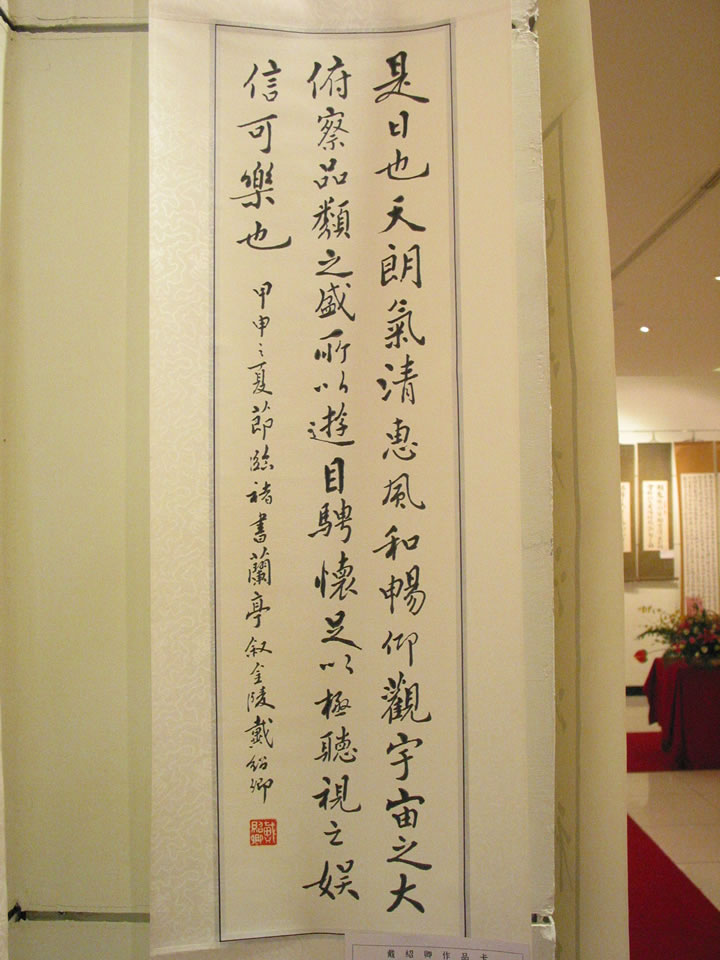 是日也天朗氣清惠風和暢仰觀宇宙之大
俯察品類之盛所以遊目騁懷足以極聽視之娛
信可樂也
甲申之夏節臨褚書蘭亭叙金陵戴紹卿
戴紹卿
戴紹卿作品卡